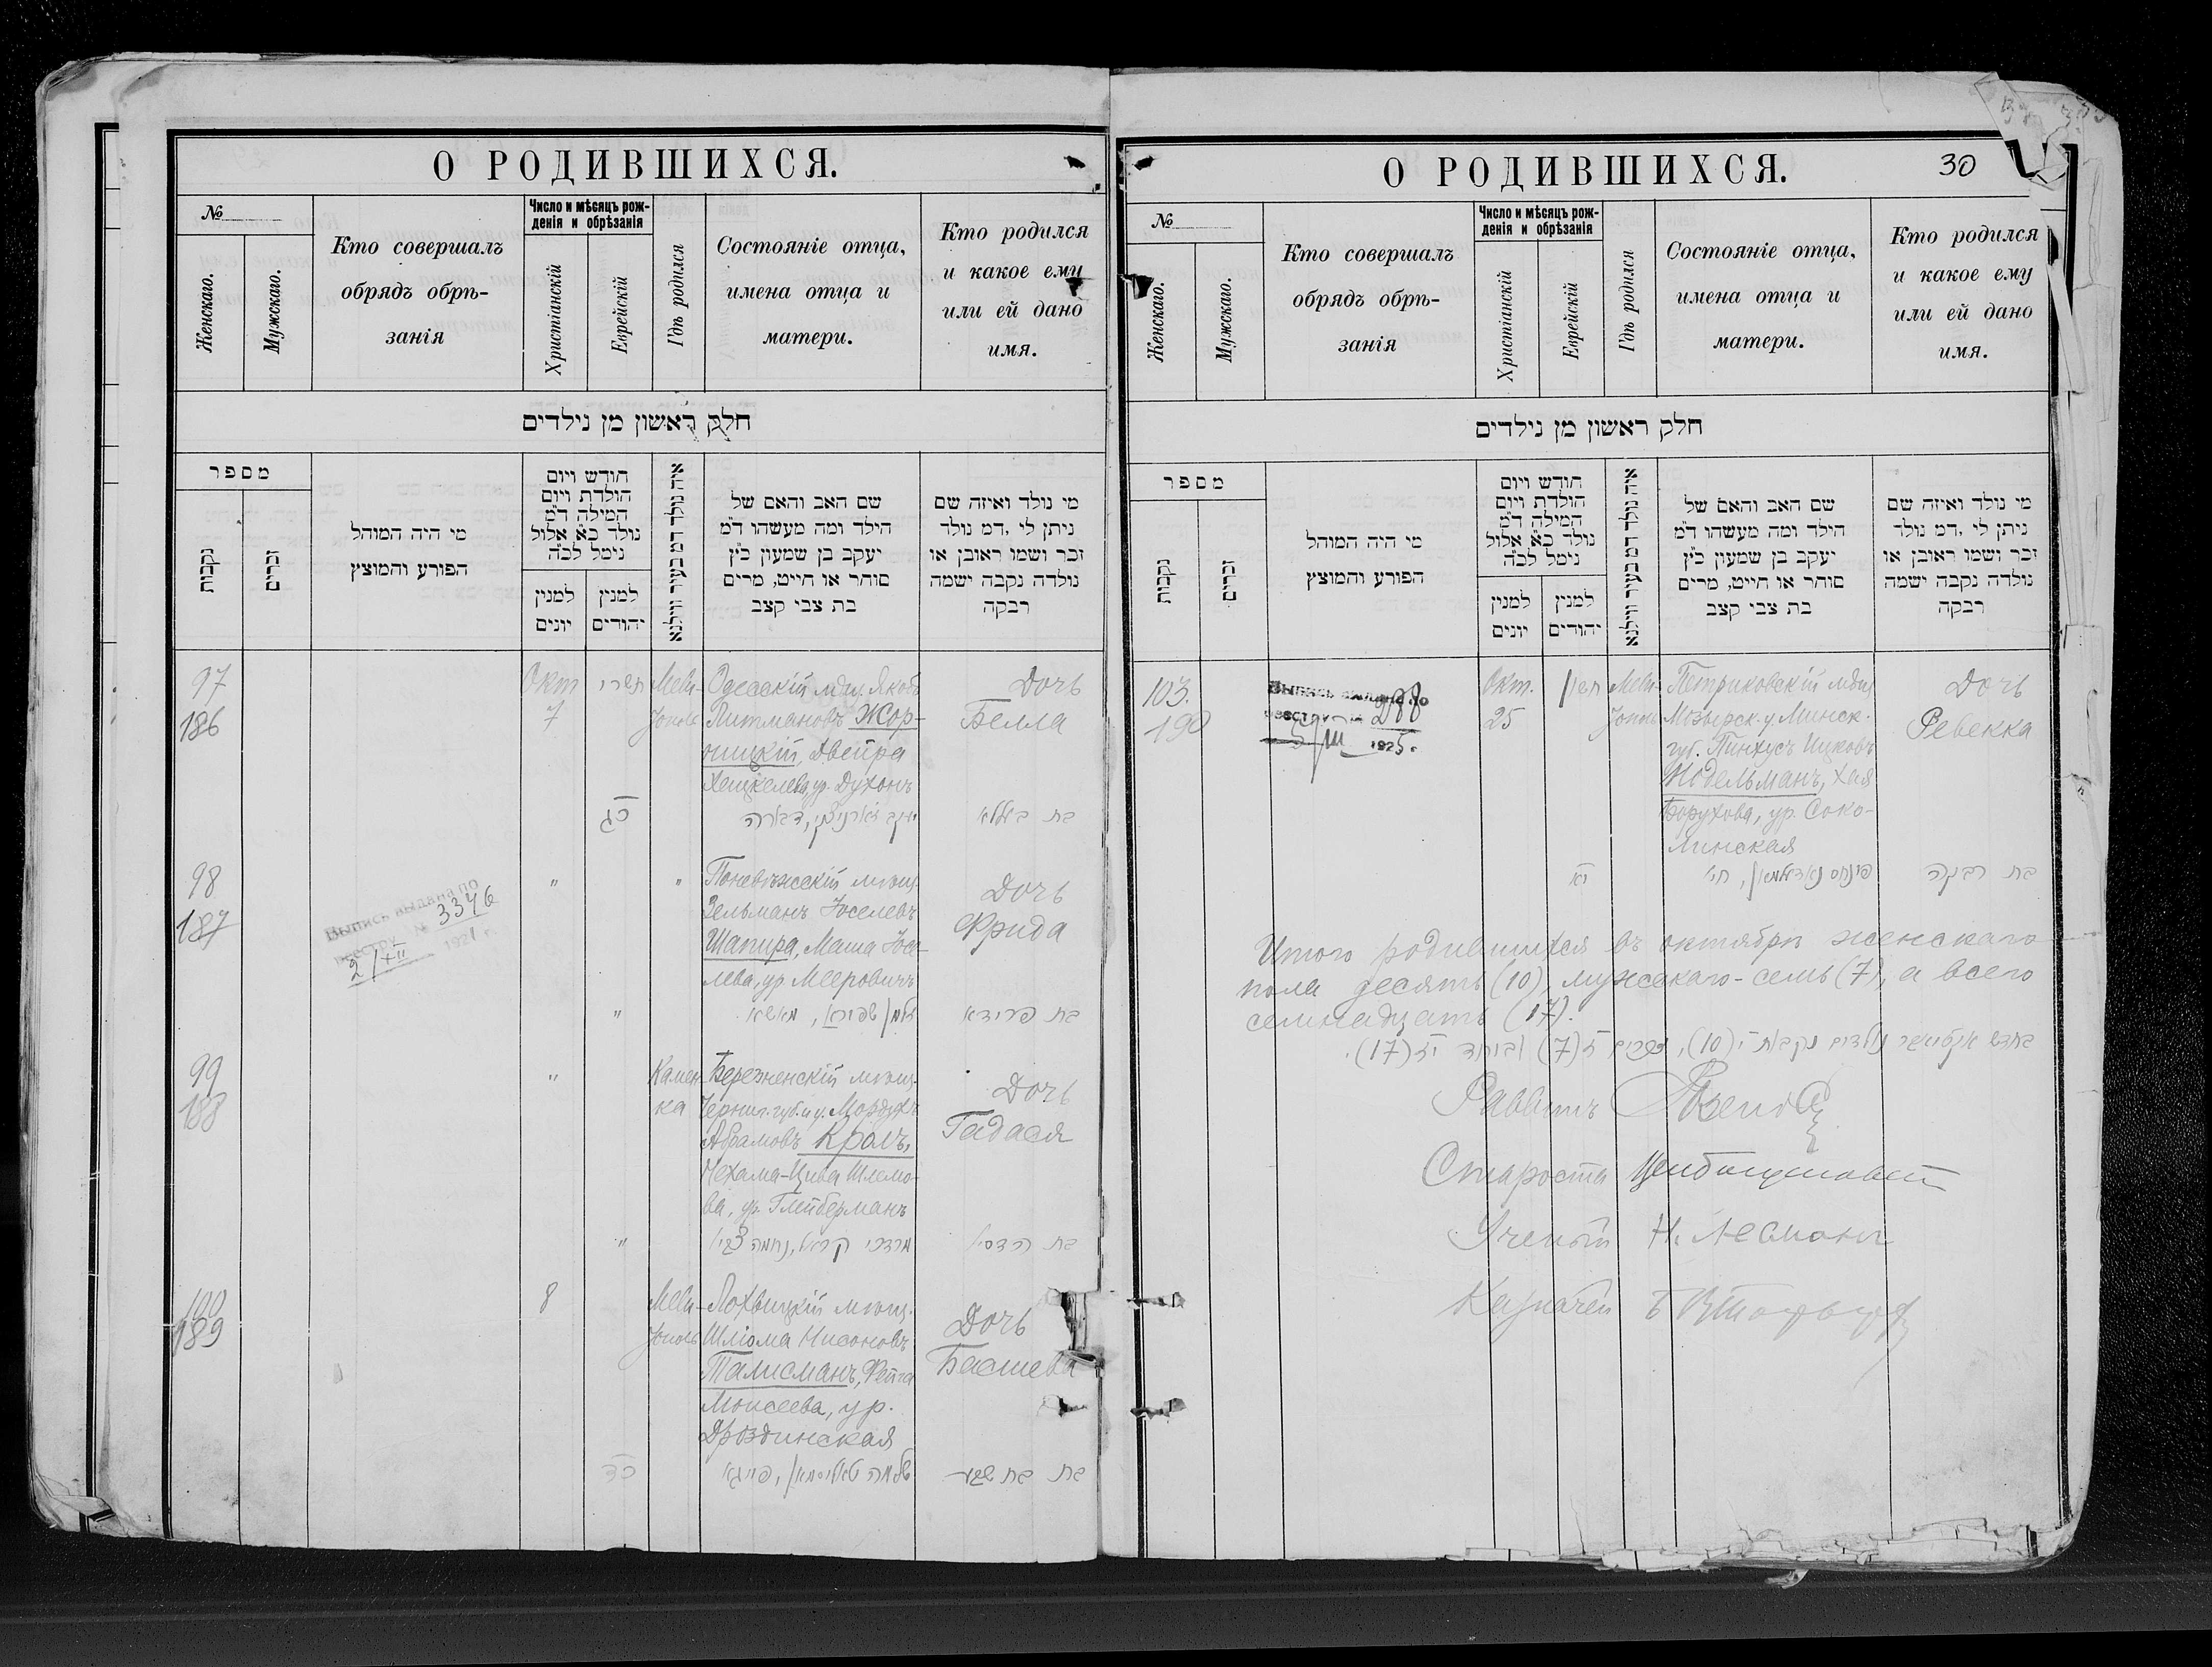 О РОДИВШИХСЯ.
№
Женскаго.
Мужскаго.
Кто совершалъ
обрядъ обрѣ-
занія
Число и мѣсяцъ рож-
денія и обрѣзанія
Христіанскій
Еврейскій
Гдѣ родился
Состояніе отца,
имена отца и
матери.
Кто родился
и какое ему
или ей дано
имя.
חלק ראשון מן נילדים
מספר
נקבות
זכרים
מי היה המוהל
הפורע והמוצץ
חודש ויום
הולדת ויום
המילה ד״מ
נולד כ״א אלול
נימל לכ״ה
למנין
יונים
למנין
יהודים
איה נולד דמ בעיר ווילנא
שם האב והאם של
הילד ומה מעשהו ד״מ
יעקב בן שמעון כ״ץ
סוחר או חייט, מרים
בת צבי קצב
מי נולד ואיזה שם
ניתן לי ,דמ נולד
זכר ושמו ראובן או
נולדה נקבה ישמה
רבקה
97
186
Окт
7
תשרי
Мели-
тополь
Одесскій мѣщ. Якобъ
Литмановъ Жор-
ницкій, Двейра
Хацкелева, ур. Духонъ
Дочь
Белла
כג
בת באללא
98
187
Выпись выдана по
реестру № 3346
2/XII 1921 г.
"
"
Поневѣжскій мѣщ.
Зельманъ Іоселевъ
Шапира, Маша Іосе-
лева, ур. Мееровичъ
Дочь
Фрида
"
זלמן שפירא, מאשא
בת פרידא
99
188
"
Камен-
ка
Березненскій мѣщ.
Черниг. губ. и у. Мордухъ
Абрамовъ Кроль,
Нехама-Цива Шлемо-
ва, ур. Глейберманъ
Дочь
Гадася
"
מרדכי קראל, נחמה צביא
בת הדסי׳
100
189
8
Мели-
тополь
Лохвицкій мѣщ.
Шліома Нисоновъ
Талисманъ, Фейга
Моисеева, ур.
Дроздинская
Дочь
Басшева
כד
שלמה טאליסמאן, פייגא
בת בת שבע
О РОДИВШИХСЯ.
30
№
Женскаго.
Мужскаго.
Кто совершалъ
обрядъ обрѣ-
занія
Число и мѣсяцъ рож-
денія и обрѣзанія
Христіанскій
Еврейскій
Гдѣ родился
Состояніе отца,
имена отца и
матери.
Кто родился
и какое ему
или ей дано
имя.
חלק ראשון מן נילדים
מספר
נקבות
זכרים
מי היה המוהל
הפורע והמוצץ
חודש ויום
הולדת ויום
המילה ד״מ
נולד כ״א אלול
נימל לכ״ה
למנין
יונים
למנין
יהודים
איה נולד דמ בעיר ווילנא
שם האב והאם של
הילד ומה מעשהו ד״מ
יעקב בן שמעון כ״ץ
סוחר או חייט, מרים
בת צבי קצב
מי נולד ואיזה שם
ניתן לי ,דמ נולד
זכר ושמו ראובן או
נולדה נקבה ישמה
רבקה
103.
190
Выпись выдана по
реестру № 288
5/III 1925 г.
Окт.
25
חשון
Мели-
тополь
Петриковскій мѣщ.
Мозырск. у. Минск.
губ. Пинхусъ Ицковъ
Нодельманъ, Хая
Борухова, ур. Соко-
линская
Дочь
Ревекка
יא
פינחס נאדעלמאן, חי׳
בת רבקה
Итого родившихся въ октябрѣ женскаго
пола десять (10), мужскаго - семь (7), а всего
семнадцать (17).
בחדש אקטיאבר נולדים נקבות י (10), זכרים ז (7) וביחד יז (17).
Раввинъ
Староста
Ученый Н. Лесманъ
Казначей